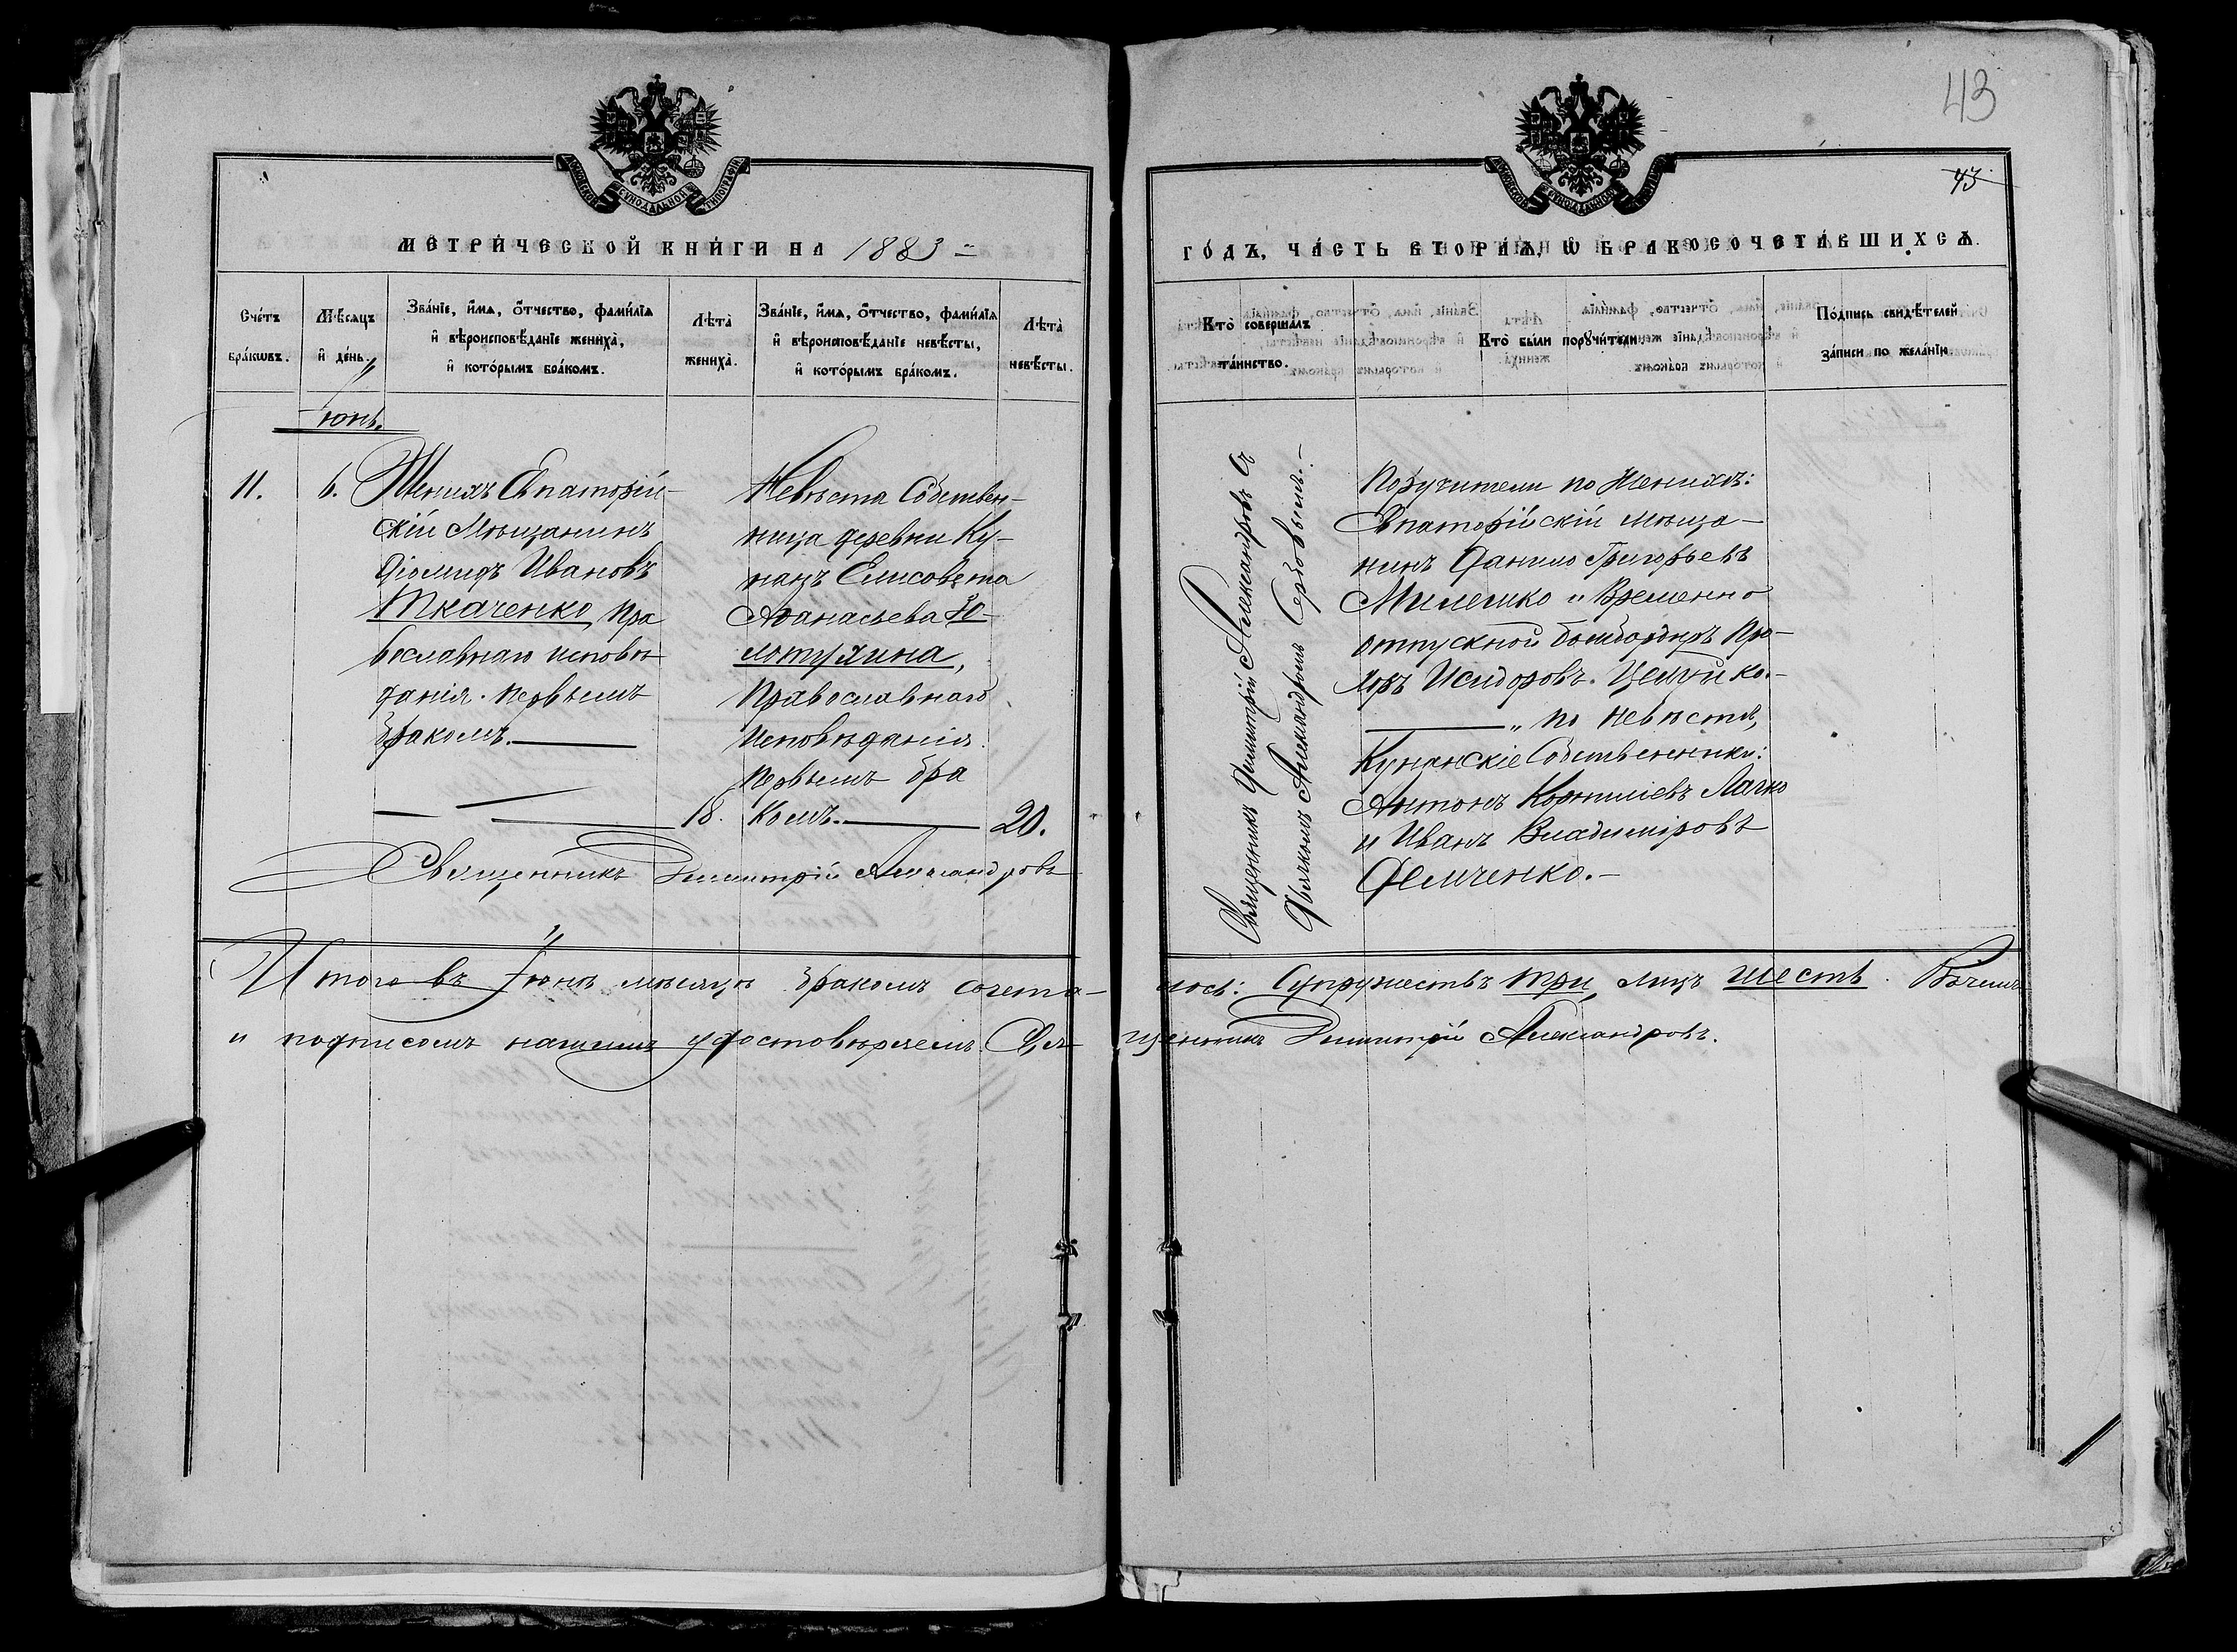 43
43
МЕТРИ́ЧЕСКОЙ КНИ́ГИ НА 1883
ГО́ДЪ, ЧА́СТЬ ВТОРА́Ѧ, Ѡ БРАКОСОЧЕТА́ВШИХСѦ.
Сче́тъ бра́кѡвъ.
Мѣ́сѧцъ и҆ де́нь.
Зва́нїе, и҆́мѧ, ѻ҆́тчество, фами́лїѧ
и҆ вѣроисповѣ́данїе жениха̀,
и҆ кото́рымъ бра́комъ.
Лѣта̀ жениха̀.
Зва́нїе, и҆́мѧ, ѻ҆́тчество, фами́лїѧ
и҆ вѣроисповѣ́данїе невѣ́сты,
и҆ кото́рымъ бра́комъ.
Лѣта̀ невѣ́сты.
Кто̀ соверша́лъ
та́инство.
Кто̀ бы́ли порꙋчи́тели.
По́дпись свидѣ́телей
за́писи по жела́нїю.
Іюнь.
11.
6.
Женихъ Евпаторій-
скій Мѣщанинъ
Діомидъ Ивановъ
Ткаченко, Пра
вославнаго исповѣ
данія. первымъ
бракомъ.
18.
Невѣста Собствен-
ница деревни Ку-
нанъ Елисавета
Аѳанасьева Зо-
лотухина,
Православнаго
Исповѣданія.
первымъ бра
комъ.
20.
Священникъ Димитрій Александровъ
Священникъ Димитрій Александровъ съ
Дьячкомъ Александромъ Сербовымъ.
Поручители по Женихѣ:
Евпаторійскій мѣща-
нинъ Данило Григорьевъ
Милешко и Временно
отпускной бомбардиръ
Исидоровъ.
по невѣстѣ,
Кунанскіе Собственники:
Антонъ Корниліевъ Лачко
и Иванъ Владиміровъ
Демченко.
Итого въ Іюнѣ мѣсяцѣ бракомъ сочета-
лось: Супружествъ три, лицъ шесть. Въ чемъ
и подписомъ нашимъ удостовѣряемъ. Свя-
щенникъ Димитрій Александровъ.